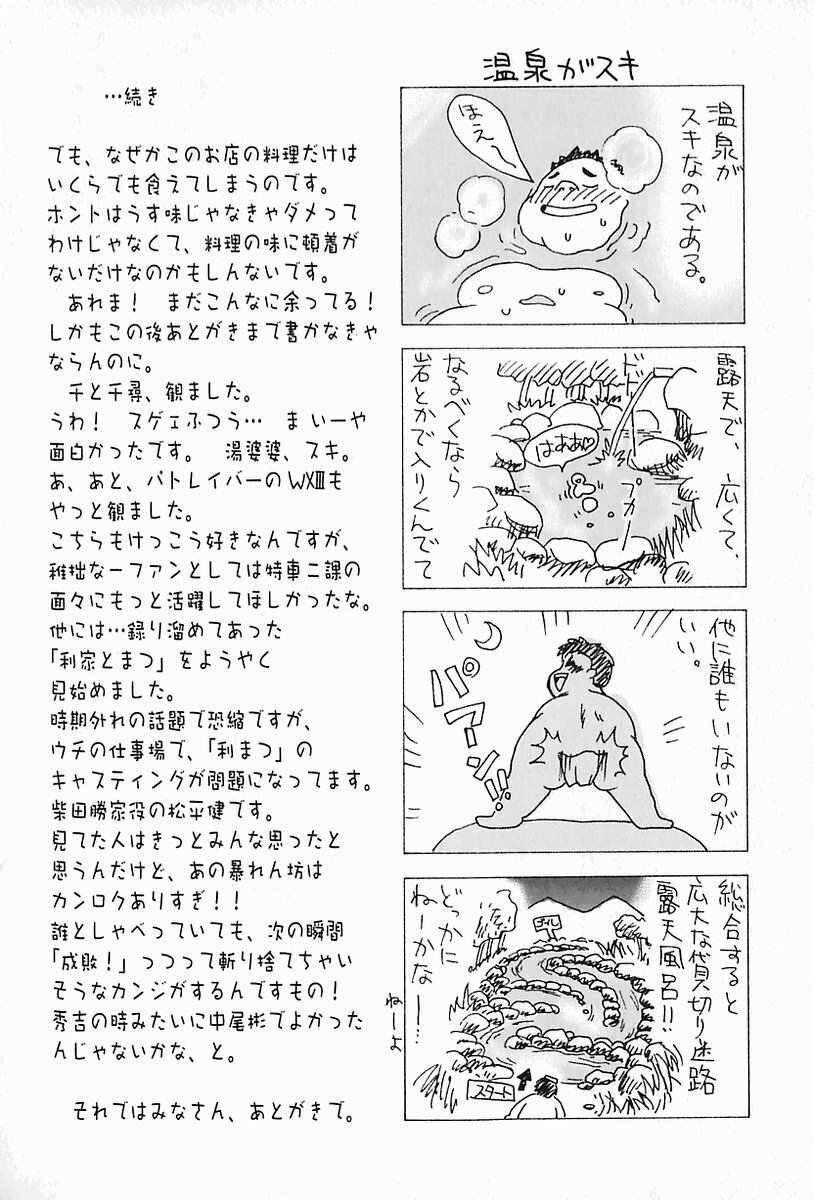 …続き
でも、なぜかこのお店の料理だけは
いくらでも食えてしまうのです。
ホントはうす味じゃなきゃダメって
わけじゃなくて、料理の味に頓着が
ないだけなのかもしんないです。
あれま！　まだこんなに余ってる！
しかもこの後あとがきまで書かなきゃ
ならんのに。
千と千尋、観ました。
うわ！　スゲェふつう…　ま いーや
面白かったです。　湯婆婆、スキ。
あ、あと、パトレイバーのＷⅩⅢも
やっと観ました。
こちらもけっこう好きなんですが、
稚拙な一ファンとしては特車二課の
面々にもっと活躍してほしかったな。
他には…録り溜めてあった
「利家とまつ」をようやく
見始めました。
時期外れの話題で恐縮ですが、
ウチの仕事場で、「利まつ」の
キャスティングが問題になってます。
柴田勝家役の松平健です。
見てた人はきっとみんな思ったと
思うんだけど、あの暴れん坊は
カンロクありすぎ！！
誰としゃべっていても、次の瞬間
「成敗！」つつって斬り捨てちゃい
そうなカンジがするんですもの！
秀吉の時みたいに中尾彬でよかった
んじゃないかな、と。
それではみなさん、あとがきで。
温泉がスキ
温泉が
スキなのである。
ほえ〜
露天で、広くて、
なるべくなら
岩とかで入りくんでて
ドド
はああ♡
プカ
他に誰もいないのが
いい。
パアーン!!
総合すると
広大な貸切り迷路
露天風呂!!
どっかに
ねーかなー…
ゴール
スタート
ねーよ